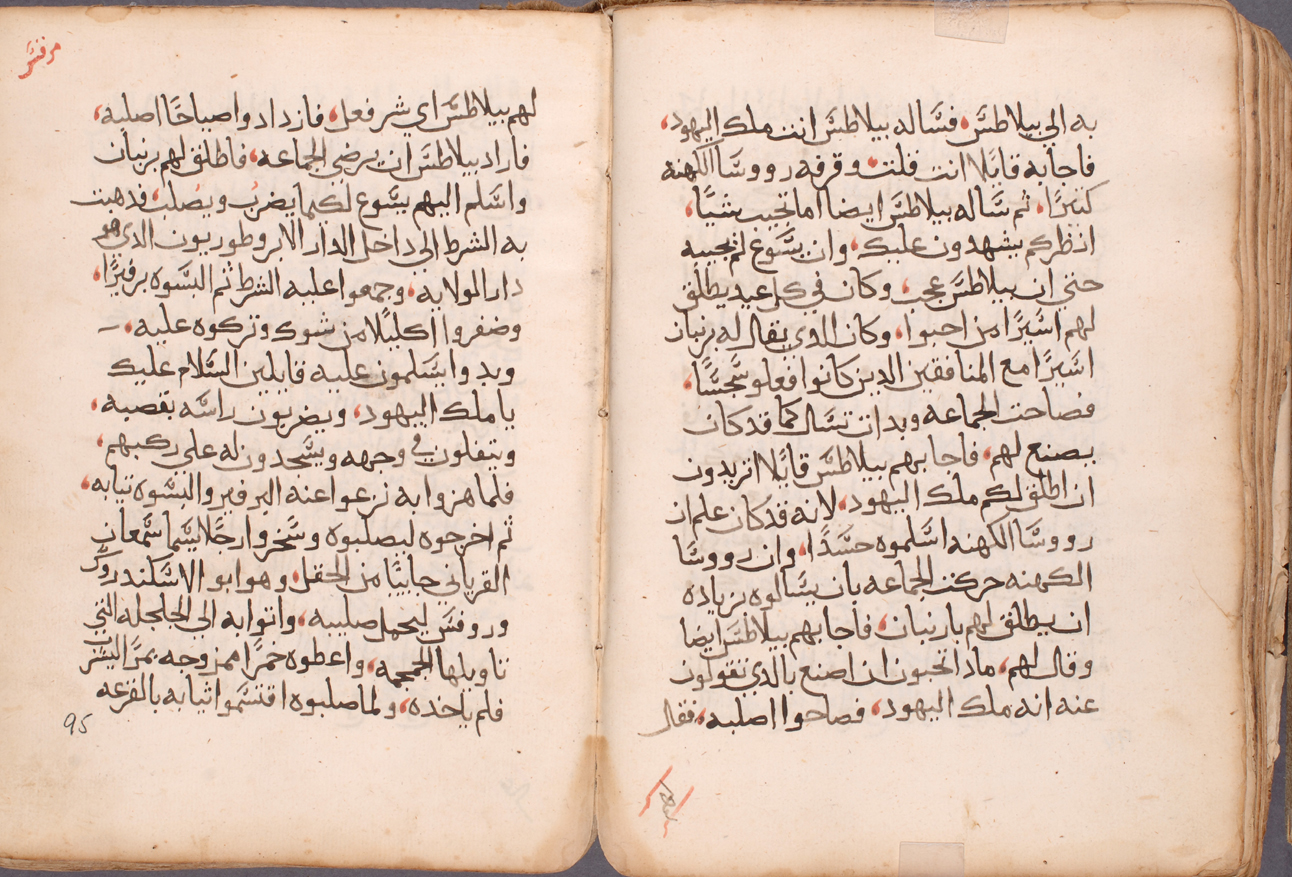 به الي بيلاطس، فساله بيلاطس انت ملك اليهود،
فاجابه قايلا انت قلت، وقرفه رووسا الكهنه
كثيرًا، ثم ساله بيلاطس ايضا اما تجيب شيًا،
انظركم يشهدون عليك، وان يسوع لم يجيبه
حتي ان بيلاطس عجب، وكان في كل عيد يطلق
لهم اسيرًا من احبوا، وكان الذي يقال له برنبان
اسيرًا مع المنافقين الدين كانوا فعلو سجسًا،
فصاحت الجماعه وبدات تسال كما قد كان
يصنع لهم، فاجابهم بيلاطس قايلا اتريدون
ان اطلق لكم ملك اليهود، لانه قد كان علم ان
رووسا الكهنه اسلموه حسدًا، وان رووسا
الكهنه حركت الجماعه بان يسالوه بزياده
ان يطلق لهم بارنبان، فاجابهم بيلاطس ايضا
وقال لهم، مادا تحبون ان اصنع بالدي تقولون
عنه انه ملك اليهود، فصاحوا اصلبه، فقال
مرقس
لهم بيلاطس اي شر فعل، فازدادوا صياحًا اصلبه،
فاراد بيلاطس ان يرضي الجماعه، فاطلق لهم برنبان
واسلم اليهم يسوع لكيما يضرب ويصلب، فدهبت
به الشرط الي داخل الدار الابروطوريون الدي هو
دار الولايه، وجمعوا عليه الشرط ثم البسوه برفيرًا،
وضفروا اكليلًا من شوك وتركوه عليه،
وبدوا يسلمون عليه قايلين السلام عليك
يا ملك اليهود، ويضربون راسه بقصبه،
ويتفلون في وجهه ويسجدون له علي ركبهم،
فلما هزوا به نزعوا عنه البرفير والبسوه تيابه،
ثم اخرجوه ليصلبوه وسخروا رجلا يسما سمعان
القرياني جاييًا من الحقل، وهو ابو الاسكندروس
وروفس ليحمل صليبه، واتوا به الي الجلجله التي
تاويلها الجمجمه، واعطوه خمرًا ممزوجه بمرًا ليشرب
فلم ياخده، ولما صلبوه اقتسموا ثيابه بالقرعه
95